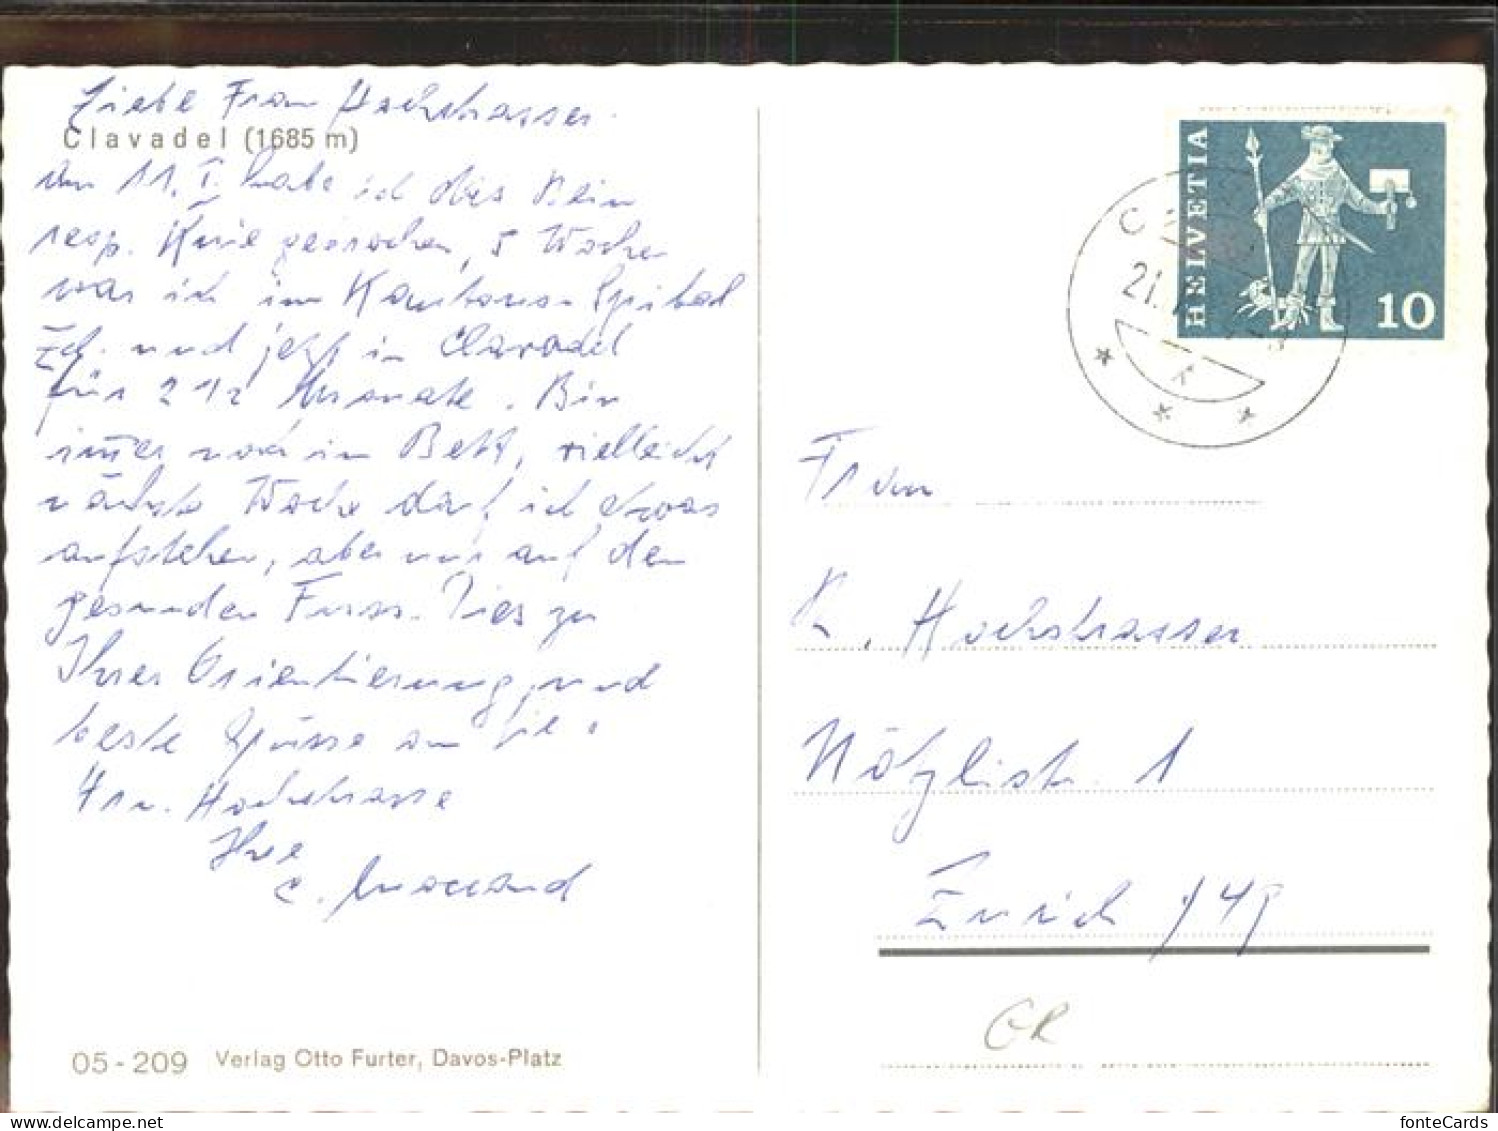 Liebe Frau Hochstrasser.
Clavadel (1685 m)
Am 11. I. habe ich das Bein
resp. Knie gebrochen, 5 Wochen
war ich im Kantons-Spital
Zch. und jetzt in Clavadel
für 2 1/2 Monate. Bin
immer noch im Bett, vielleicht
nächste Woche darf ich etwas
aufstehen, aber nur auf den
gesunden Fuss. Dies zu
Ihrer Orientierung, und
beste Grüsse an Sie &
Hrn. Hochstrasse
Ihre
C.
05-209 Verlag Otto Furter, Davos-Platz
HELVETIA
10
21.
Frau
R. Hochstrasser
Nötzlistr. 1
Zürich /49
GR
fonteCards